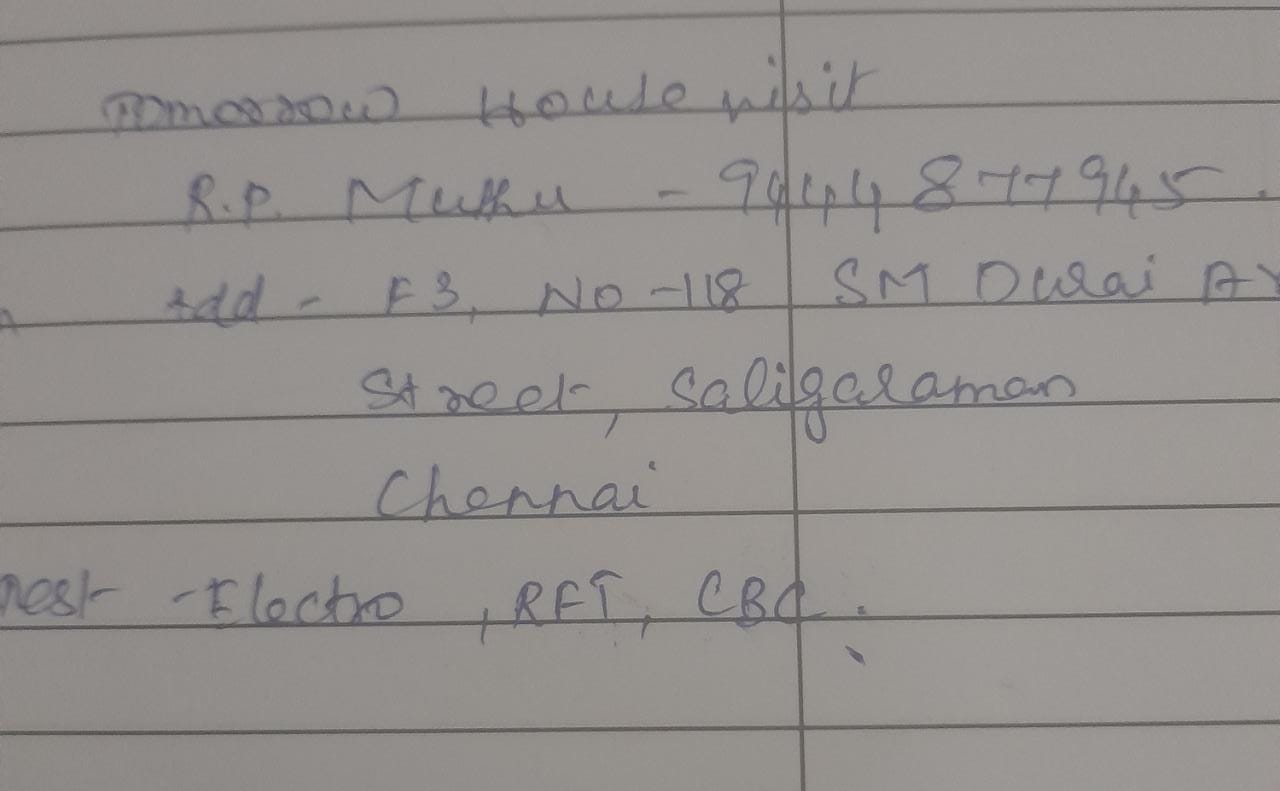 Tomorrow House visit
R.P. Muthu - 9444877945.
Add - F3, NO-118 SM Durai
Street, Saligaraman
Chennai
Test - Electro, RFT, CBC.